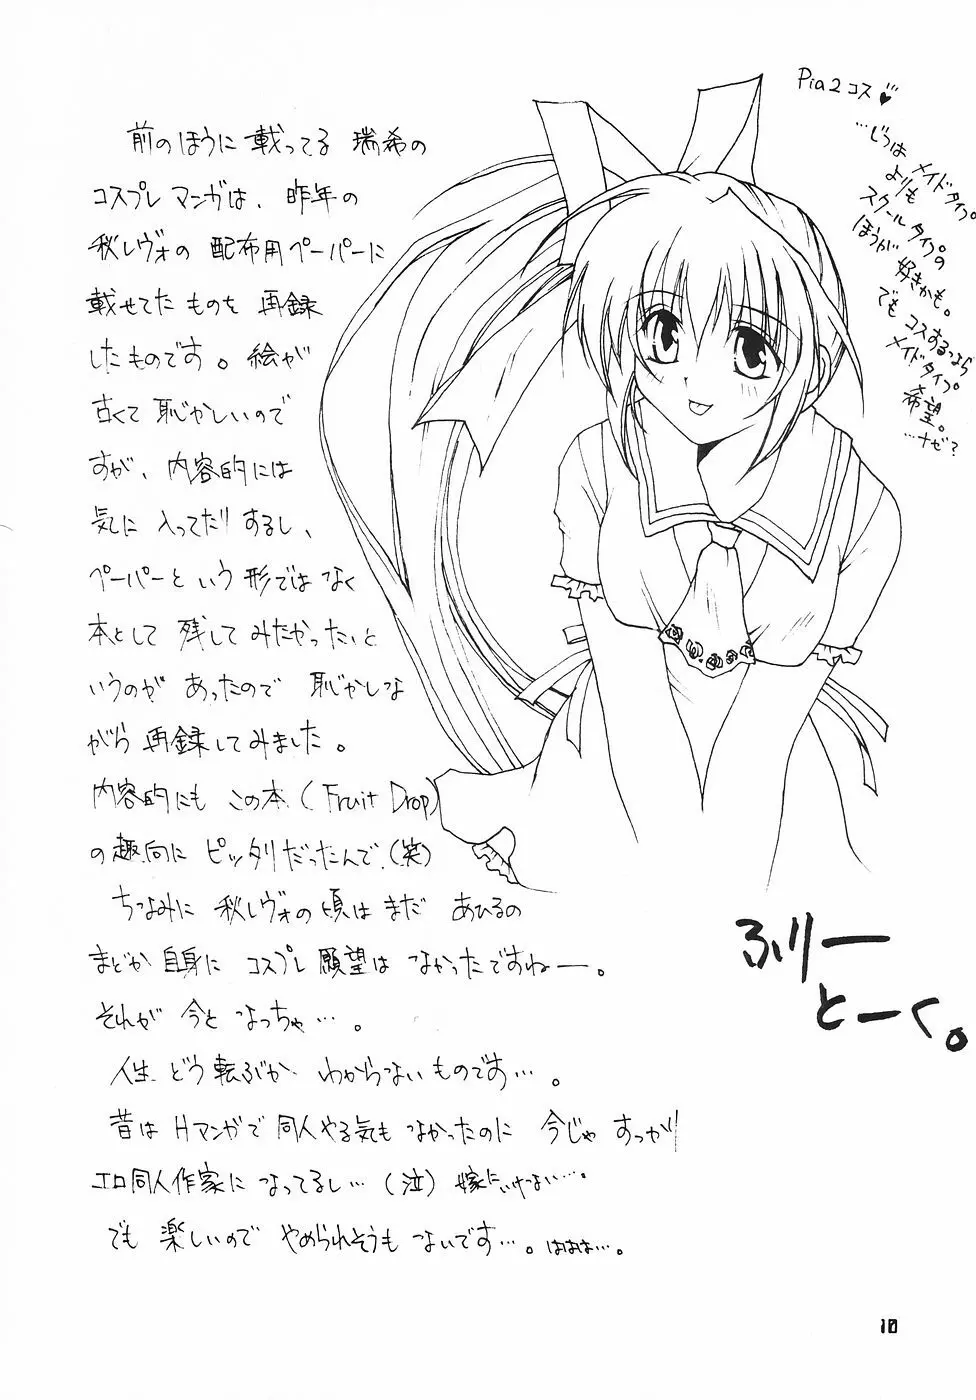 前のほうに載ってる 瑞希の
コスプレマンガは、昨年の
秋レヴォの 配布用ペーパーに
載せてた ものを 再録
したものです。絵が
古くて 恥かしいので
すが、内容的には
気に 入ってたりするし、
ペーパーという形ではなく
本として 残してみたかったいと
いうのが あったので 恥かしな
がら再録してみました。
内容的にも この本(Fruit Drop)
の趣向に ピッタリだったんで(笑)
ちなみに 秋レヴォの頃は まだ あひるの
まどか自身に コスプレ願望は なかったですねー。
それが 今となっちゃ…。
人生 どう転ぶか わからないものです…。
昔は Hマンガで同人やる気も なかったのに 今じゃ すっかり
エロ同人作家に なってるし…(泣) 嫁にいけない…。
でも 楽しいので やめられそうも ないです…。はぁぁ…。
Pia2コス♥
…じつは
メイドタイプ
よりも
スクールタイプの
ほうが 好きかも。
でも コスするなら
メイドタイプ
希望。
…ナゼ?
ふりー
とーく。
10